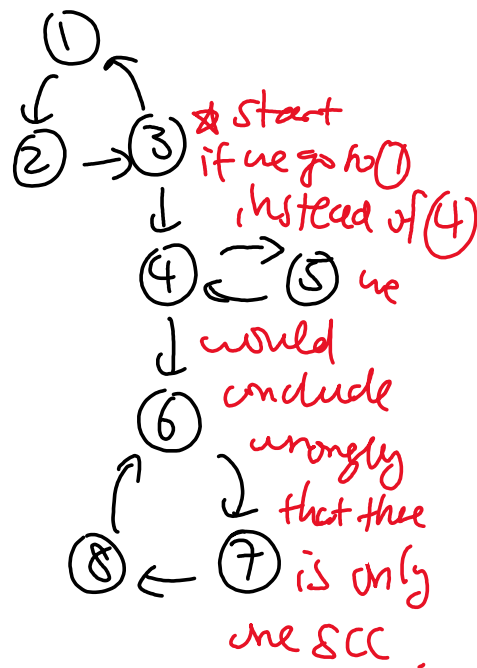 1
2
3
☆ start
if we go to ①
instead of ④
4
5
we
would
conclude
6
wrongly
that thee
8
7
is only
one SCC.